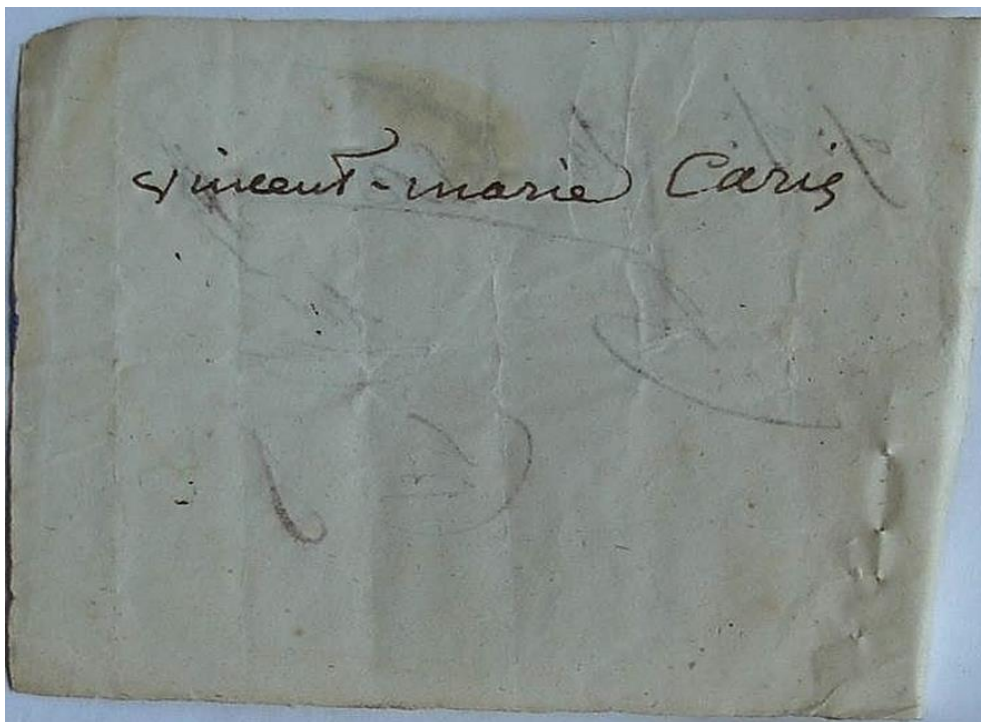 vincent-marie Caris